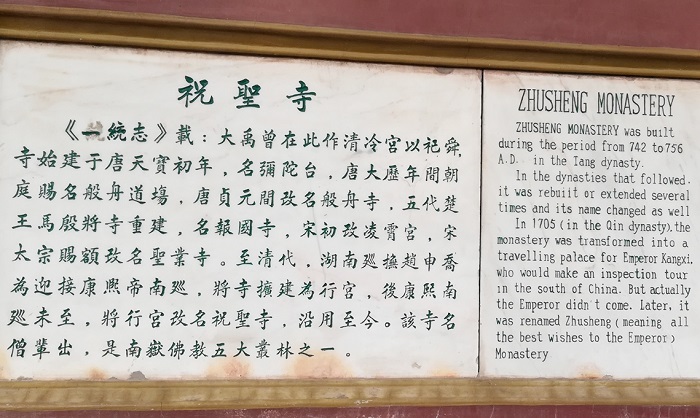 祝聖寺
《一統志》載：大禹曾在此作清冷宮以祀舜，
寺始建于唐天寶初年，名彌陀台，唐大歷年間朝
庭賜名般舟道場，唐貞元間改名般舟寺，五代楚
王馬殷將寺重建，名報國寺，宋初改凌霄宮，宋
太宗賜額改名聖業寺。至清代，湖南巡撫趙申喬
為迎接康熙帝南巡，將寺擴建為行宮，後康熙南
巡未至，將行宮改名祝聖寺，沿用至今。該寺名
僧輩出，是南嶽佛教五大叢林之一。
ZHUSHENG MONASTERY
ZHUSHENG MONASTERY was built
during the period from 742 to 756
A.D. in the Tang dynasty.
In the dynasties that followed.
it was rebuilt or extended several
times and its name changed as well
In 1705 (in the Qin dynasty), the
monastery was transformed into a
travelling palace for Emperor Kangxi.
who would make an inspection tour
in the south of China. But actually
the Emperor didn't come. Later, it
was renamed Zhusheng (meaning all
the best wishes to the Emperor)
Monastery